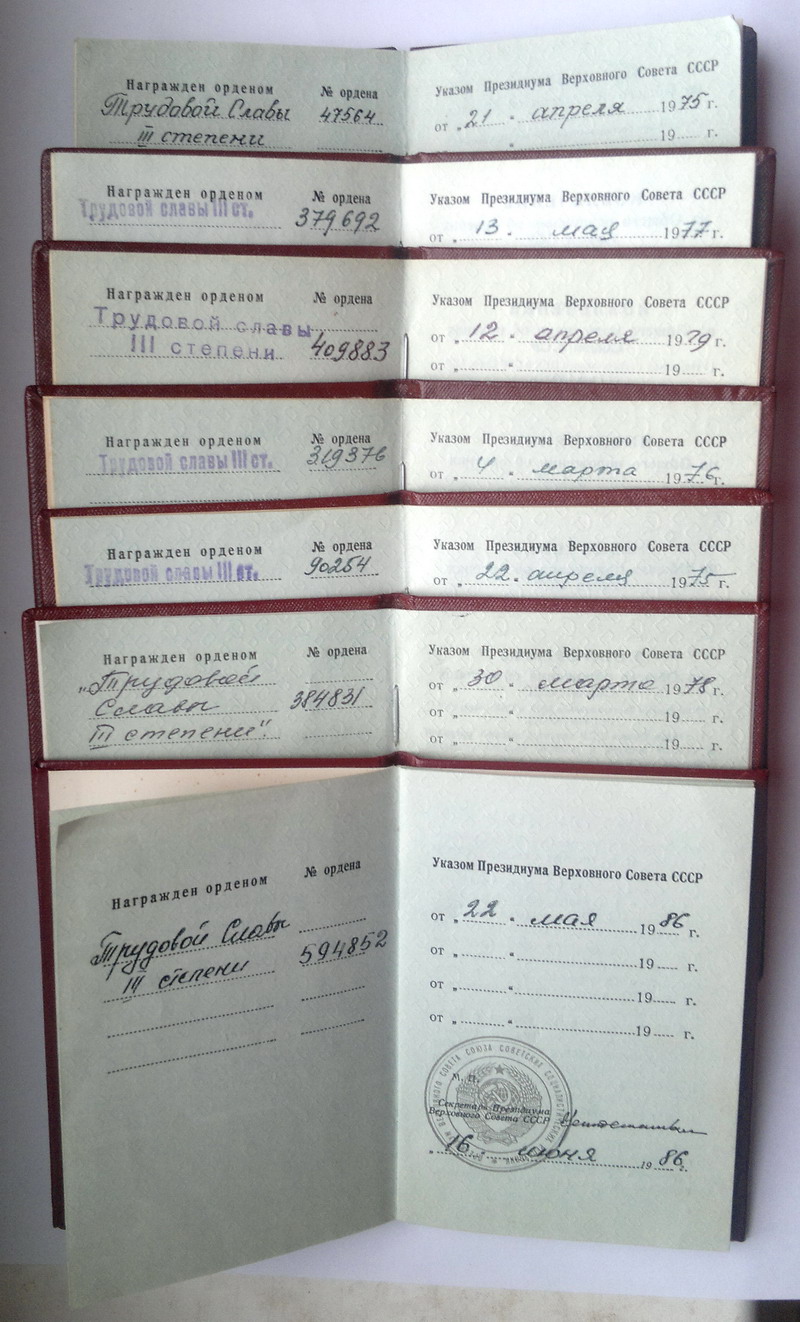 Награжден орденом № ордена
Трудовой Славы 47564
III степени
Указом Президиума Верховного Совета СССР
от „21“ апреля 1975 г.
„ “ 19 г.
Награжден орденом № ордена
Трудовой славы III ст. 379692
Указом Президиума Верховного Совета СССР
от „13. мая 1977 г.
Награжден орденом № ордена
Трудовой славы
III степени 409883
Указом Президиума Верховного Совета СССР
от „12“ апреля 1979 г.
от „ “ 19 г.
Награжден орденом № ордена
Трудовой славы III ст. 319376
Указом Президиума Верховного Совета СССР
от „4“ марта 1976 г.
Награжден орденом № ордена
Трудовой славы III ст. 90254
Указом Президиума Верховного Совета СССР
от „22. апреля 1975 г.
Награжден орденом № ордена
„Трудовой
Славы 384831
III степени“.
Указом Президиума Верховного Совета СССР
от „30“ марта 1978 г.
от „ “ 19 г.
от „ “ 19 г.
Награжден орденом № ордена
Трудовой Славы
III степени 594852
Указом Президиума Верховного Совета СССР
от „22“ мая 1986 г.
от „ “ 19 г.
от „ “ 19 г.
от „ “ 19 г.
М. П.
Секретарь Президиума
Верховного Совета СССР
„16“ июня 1986 г.